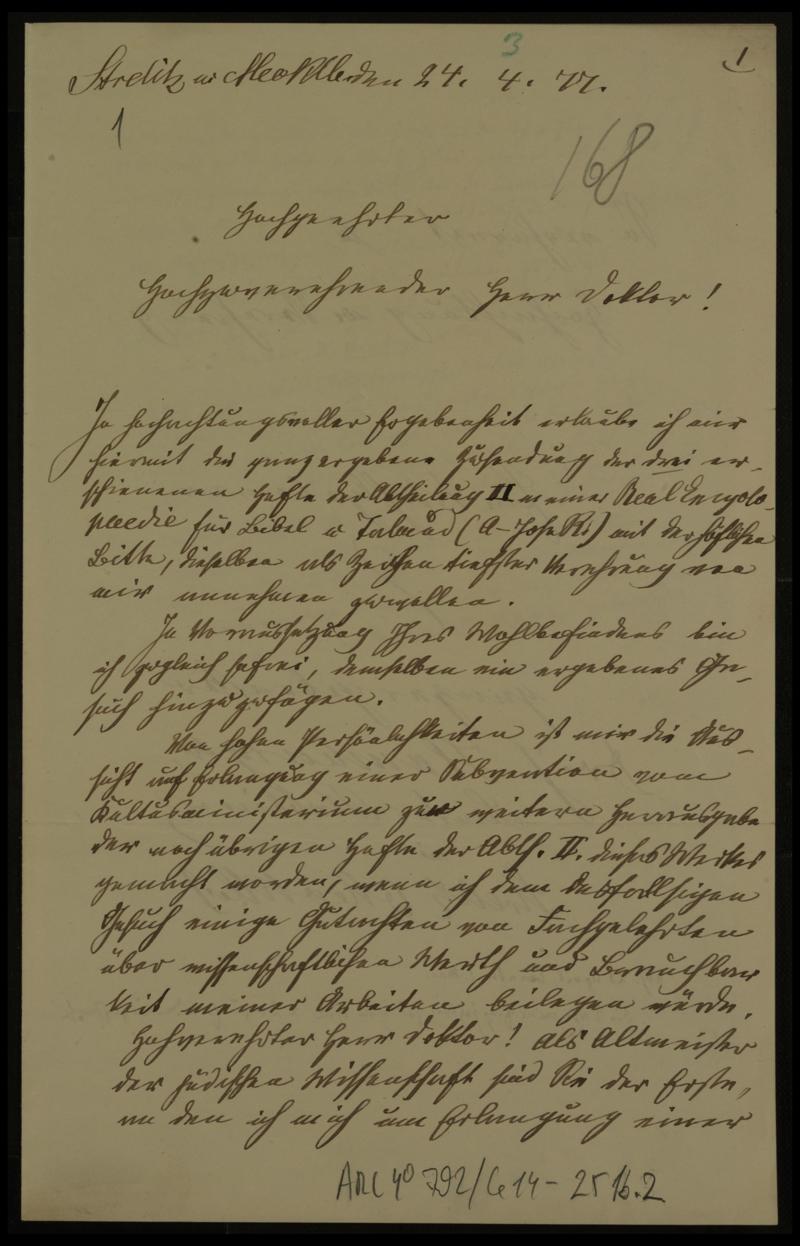 3
1
Strelitz in Mecklb. den 24. 4. 77.
1
168
Hochgeehrter
Hochzuverehrender Herr Doktor!
In hochachtungsvoller Ergebenheit erlaube ich mir
hiermit die ganz ergebene Zusendung der drei er-
schienenen Hefte der Abtheilung II meiner Real Encyclo-
paedie für Bibel u Talmud (A–) mit der höflichen
Bitte, dieselben als Zeichen tiefster Verehrung von
mir annehmen zu wollen.
In Voraussetzung Ihres Wohlbefindens bin
ich zugleich so frei, demselben ein ergebenes Ge-
such hinzuzufügen.
Von hohen Persönlichkeiten ist mir die Aus-
sicht auf Erlangung einer Subvention vom
Kultusministerium zur weitern Herausgabe
der noch übrigen Hefte der Abth. II. dieses Werkes
gemacht worden, wenn ich dem desfallsigen
Gesuch einige Gutachten von Fachgelehrten
über wissenschaftlichen Werth und Brauchbar
keit meiner Arbeiten beilegen würde.
Hochverehrter Herr Doktor! Als Altmeister
der jüdischen Wissenschaft sind Sie der Erste,
an den ich mich um Erlangung einer
ARC 4° 792/C14-25 16.2